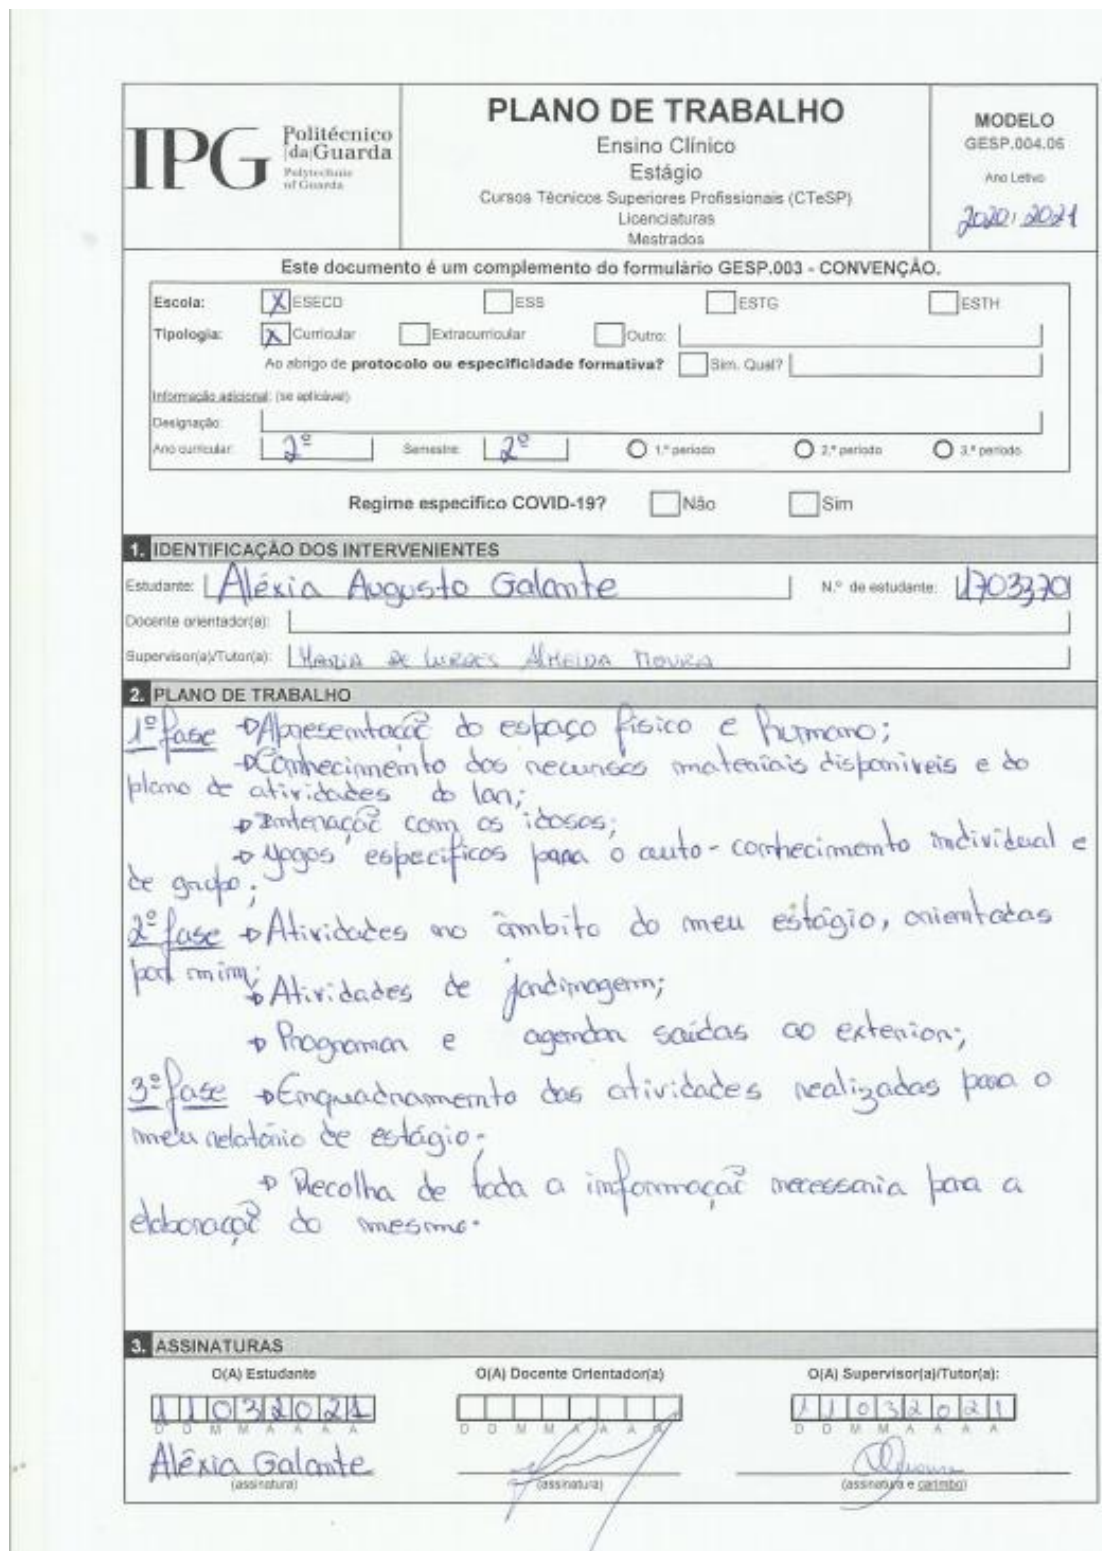 IPG Politécnico
|da|Guarda
Polytechnic
of Guarda
PLANO DE TRABALHO
Ensino Clínico
Estágio
Cursos Técnicos Superiores Profissionais (CTeSP)
Licenciaturas
Mestrados
MODELO
GESP.004.06
Ano Letivo
2020/2021
Este documento é um complemento do formulário GESP.003 - CONVENÇÃO.
Escola: X ESECD ESS ESTG ESTH
Tipologia: X Curricular Extracurricular Outro:
Ao abrigo de protocolo ou especificidade formativa? Sim. Qual?
Informação adicional: (se aplicável)
Designação:
Ano curricular: 2º Semestre: 2º 1.º período 2.º período 3.º período
Regime específico COVID-19? Não Sim
1. IDENTIFICAÇÃO DOS INTERVENIENTES
Estudante: Aléxia Augusto Galante N.º de estudante: 1703370
Docente orientador(a):
Supervisor(a)/Tutor(a): MARIA DE LURDES ALMEIDA MOURA
2. PLANO DE TRABALHO
1º fase → Apresentação do espaço físico e humano;
→ Conhecimento dos recursos materiais disponiveis e do
plano de atividades do lar;
→ Interação com os idosos;
→ Jogos especificos para o auto-conhecimento individual e
de grupo;
2º fase → Atividades no âmbito do meu estágio, orientadas
por mim;
→ Atividades de jardinagem;
→ Programar e agendar saídas ao exterior;
3º fase → Enquadramento das atividades realizadas para o
meu relatório de estágio;
→ Recolha de toda a informação necessaria para a
elaboração do mesmo.
3. ASSINATURAS
O(A) Estudante O(A) Docente Orientador(a) O(A) Supervisor(a)/Tutor(a):
11032021 11032021
D D M M A A A A D D M M A A A A D D M M A A A A
Aléxia Galante
(assinatura) (assinatura) (assinatura e carimbo)